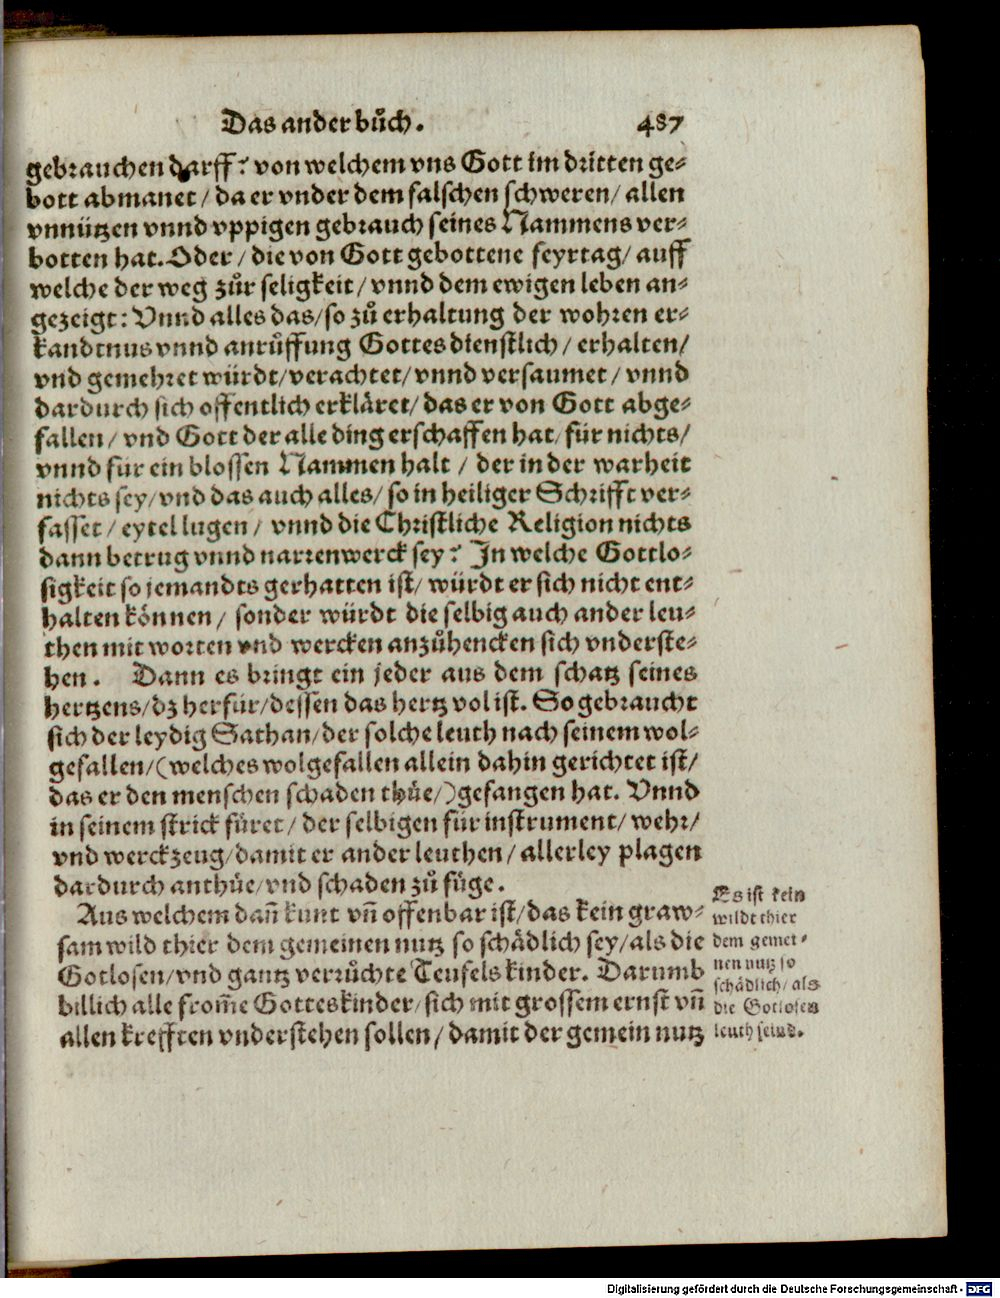 Das ander bůch. 487
gebrauchen darff? von welchem vns Gott im dritten ge-
bott abmanet / da er vnder dem falschen schweren / allen
vnnützen vnnd vppigen gebrauch seines Nammens ver-
botten hat. Oder / die von Gott gebottene feyrtag / auff
welche der weg zůr seligkeit / vnnd dem ewigen leben an-
gezeigt: Vnnd alles das / so zů erhaltung der wohren er-
kandtnus vnnd anrůffung Gottes dienstlich / erhalten /
vnd gemehret würdt / verachtet / vnnd versaumet / vnnd
dardurch sich offentlich erkläret / das er von Gott abge-
fallen / vnd Gott der alle ding erschaffen hat / für nichts /
vnnd für ein blossen Nammen halt / der in der warheit
nichts sey / vnd das auch alles / so in heiliger Schrifft ver-
fasset / eytel lugen / vnnd die Christliche Religion nichts
dann betrug vnnd narrenwerck sey? In welche Gottlo-
sigkeit so jemandts gerhatten ist / würdt er sich nicht ent-
halten können / sonder würdt die selbig auch ander leu-
then mit worten vnd wercken anzůhencken sich vnderste-
hen. Dann es bringt ein jeder aus dem schatz seines
hertzens / dz herfür / dessen das hertz vol ist. So gebraucht
sich der leydig Sathan / der solche leuth nach seinem wol-
gefallen / (welches wolgefallen allein dahin gerichtet ist /
das er den menschen schaden thüe /) gefangen hat. Vnnd
in seinem strick füret / der selbigen für instrument / wehr /
vnd werckzeug / damit er ander leuthen / allerley plagen
dardurch anthüe / vnd schaden zů füge.
Aus welchem dañ kunt vñ offenbar ist / das kein graw-
sam wild thier dem gemeinen nutz so schädlich sey / als die
Gotlosen / vnd gantz verrůchte Teufels kinder. Darumb
billich alle from̃e Gottes kinder / sich mit grossem ernst vñ
allen krefften vnderstehen sollen / damit der gemein nutz
Es ist kein
wildt thier
dem gemei-
nen nutz so
schädlich / als
die Gotlosen
leuth seind.
Digitalisierung gefördert durch die Deutsche Forschungsgemeinschaft - DFG